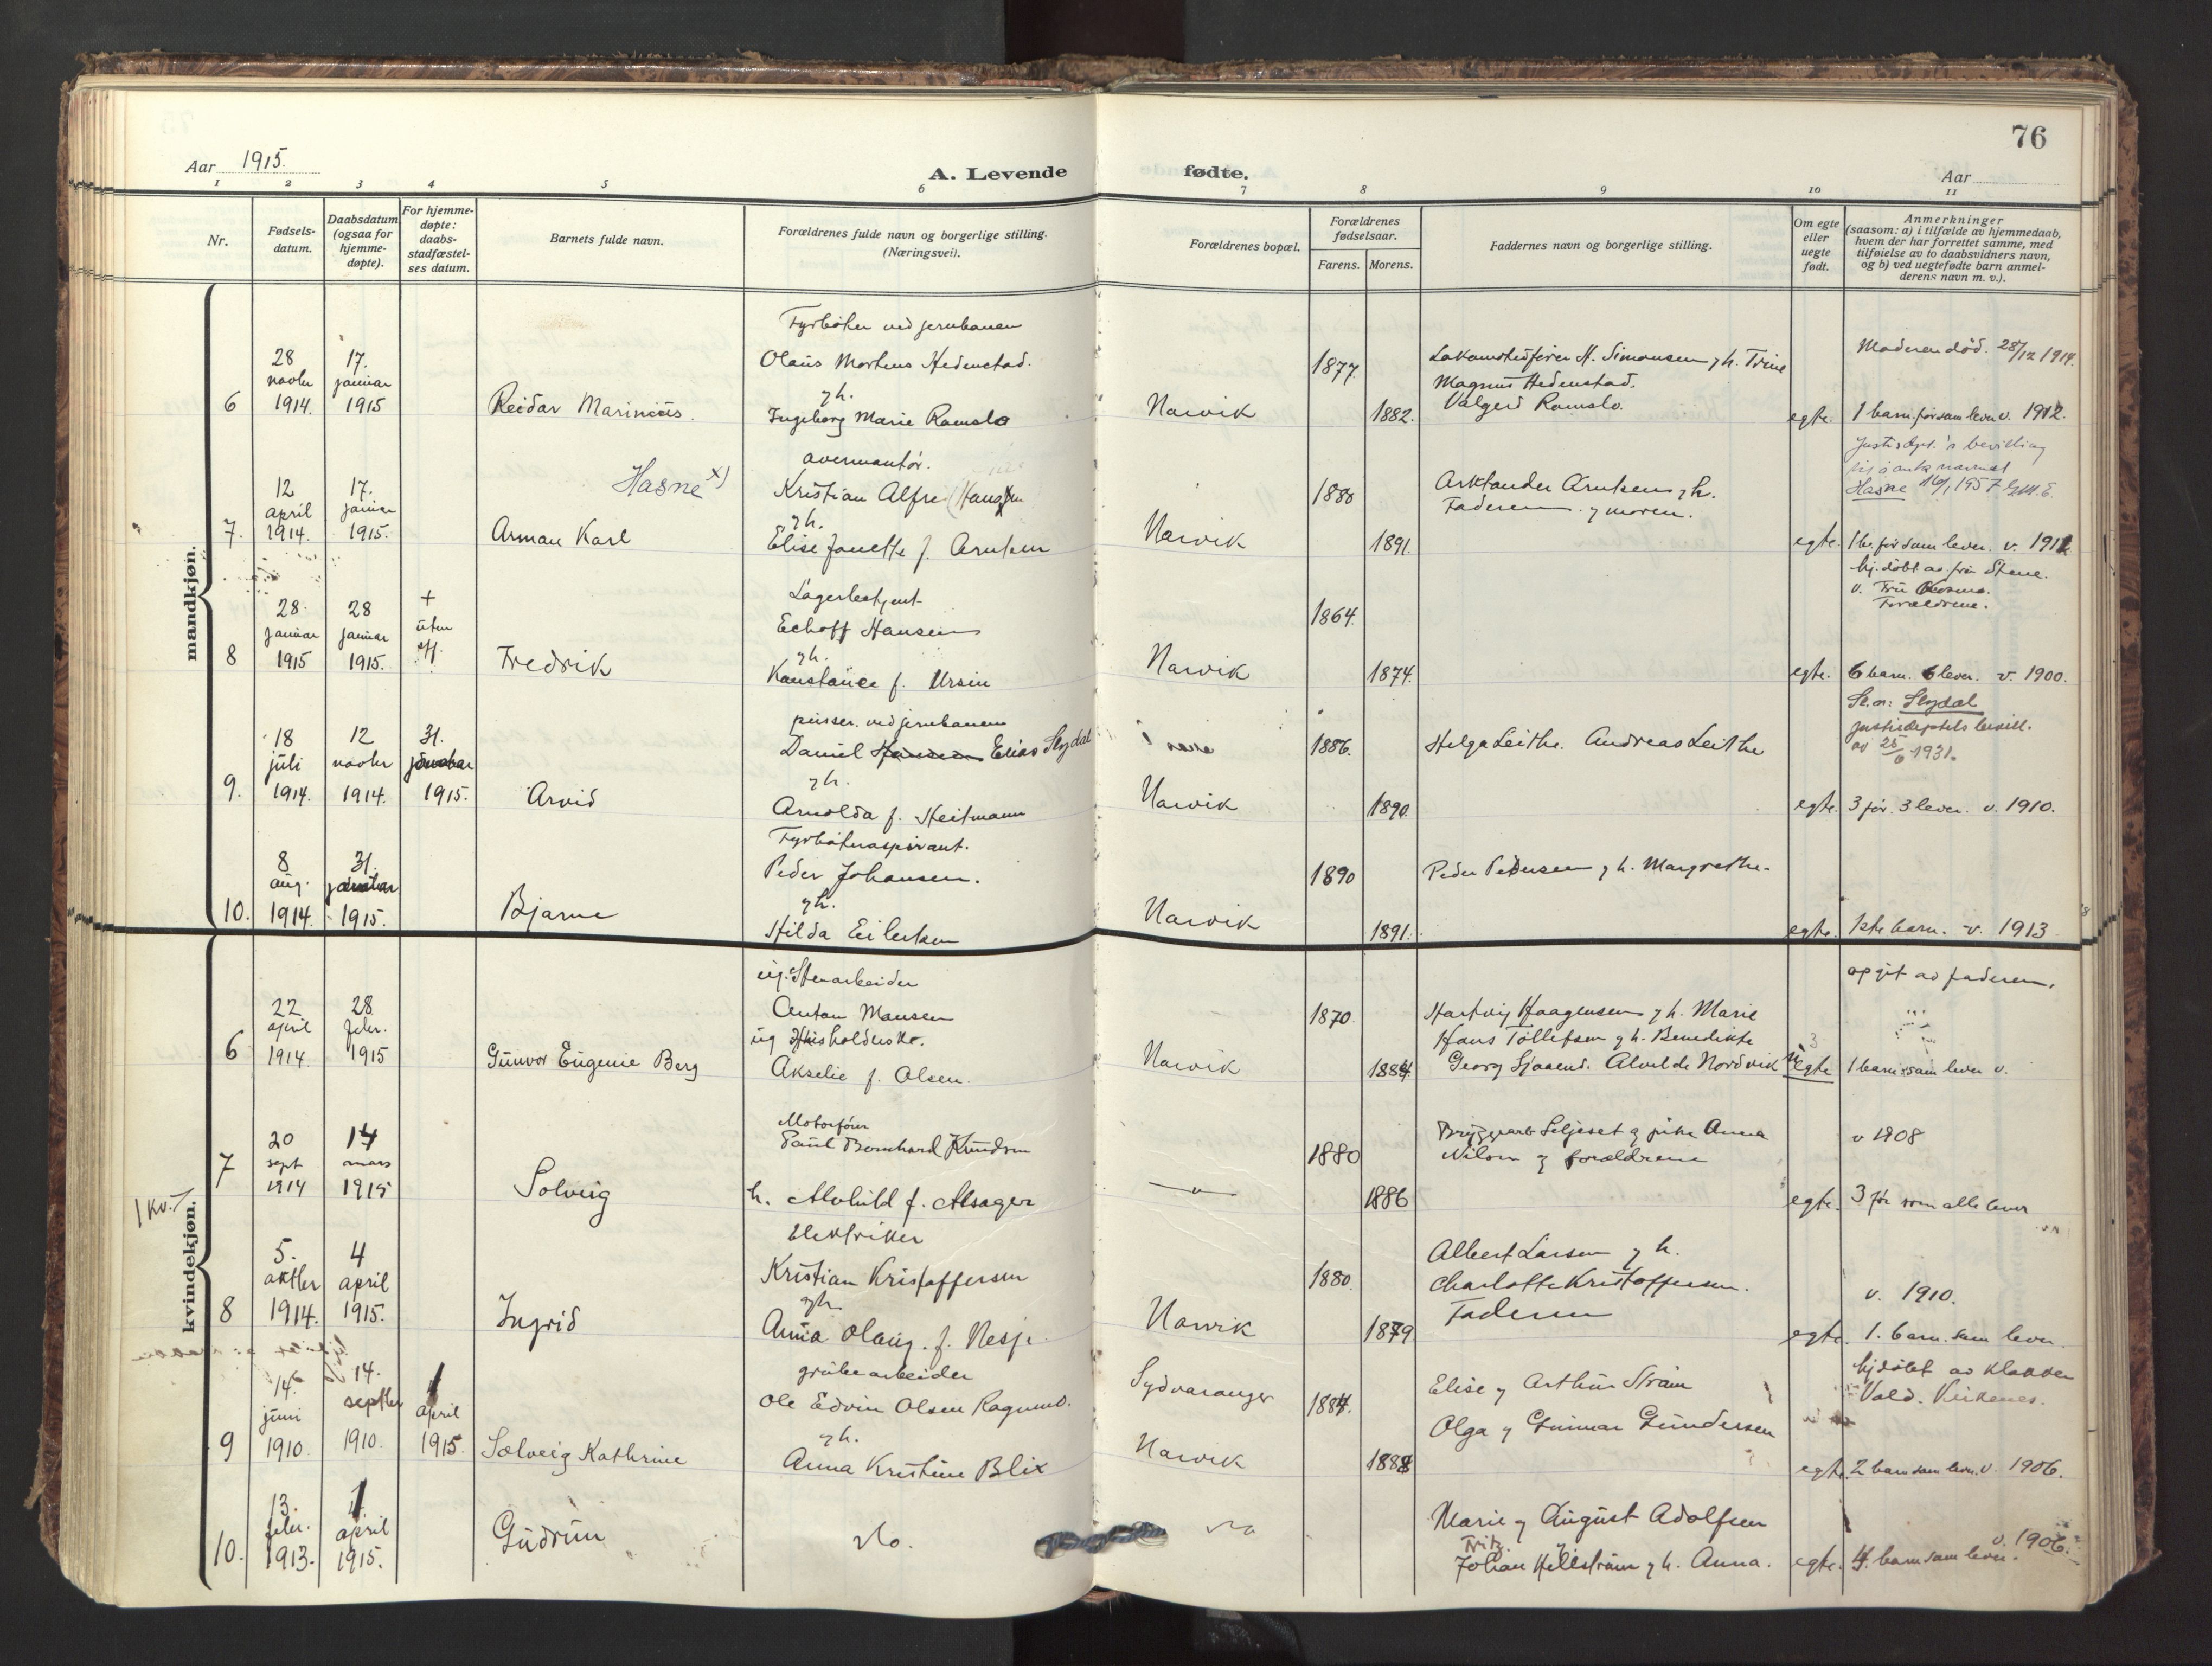 76
Aar 1915.
A. Levende fødte.
Aar
1 2 3 4 5 6 7 8 9 10 11
Nr.
Fødsels-
datum.
Daabsdatum
(ogsaa for
hjemme-
døpte).
For hjemme-
døpte:
daabs-
stadfæstel-
ses datum.
Barnets fulde navn.
Forældrenes fulde navn og borgerlige stilling.
(Næringsvei).
Forældrenes bopæl.
Forældrenes
fødselsaar.
Farens. Morens.
Faddernes navn og borgerlige stilling.
Om egte
eller
uegte
født.
Anmerkninger
(saasom: a) i tilfælde av hjemmedaab,
hvem der har forrettet samme, med
tilføielse av to daabsvidners navn,
og b) ved uegtefødte barn anmel-
derens navn m. v.).
mandkjøn.
6
28
novbr
1914.
17.
januar
1915
Reidar Marinius.
Fyrbøter ved jernbanen
Olaus Mortens Hedenstad.
gh.
Ingeborg Marie Ramslo
Narvik
1877.
1882.
Lokomotivfører H. Simonsen gh. Trine
Magnus Hedenstad.
Valgerd Ramslo.
egte.
Moderen død. 28/12 1914.
1 barn før som lever v. 1912.
7.
12
april
1914.
17.
januar
1915.
Hasne x)
Arman Karl
overmontør.
Kristian Alfred
gh.
Elise Janette f. Arntsen
Narvik
1880
1891.
Arktander Arntsen gh.
Faderen g moren.
egte.
Justisdpt.'s bevilling
til å anta navnet
Hasne 16/1 1957
1 br. før som lever. v. 1911
8
28
januar
1915
28
januar
1915.
+
uten
Fredrik
Lagerbetjent
Echoff Hansen
gh.
Konstance f. Ursin
Narvik
1864.
1874.
egte.
hj. døbt av fru Stene.
v. Fru
Forældrene.
6 barn. 6 lever. v. 1900.
9.
18
juli
1914.
12
novbr
1914.
31.
januar
1915.
Arvid
pusser. ved jernbanen
Daniel Hansen Elias Slydal
gh.
Arnolda f. Heitmann
Narvik
1886.
1890.
Helga Leithe. Andreas Leithe
egte.
Sl.n: Slydal
justisdeptets bevill.
av 25/6 1931.
3 før. 3 lever. v. 1910.
10.
8
aug.
1914.
31.
januar
1915.
Bjarne
Fyrbøteraspirant.
Peder Johansen.
gh.
Hilda Eilertsen
Narvik
1890
1891.
Peder Pedersen gh. Margrethe.
egte.
1ste barn. v. 1913
kvindekjøn.
1 kv.
6
22
april
1914.
28
febr.
1915
Gunvor Eugenie Berg
ug. Stenarbeider
Anton Monsen
ug Husholderske.
Akselie f. Olsen.
Narvik
1870.
1884.
Hartvig Haagensen gh. Marie
Hans Tollefsen gh. Benedikte
Georg Sjaaend. Alvilde Nordvik
uegte
opgit av faderen.
1 barn som lever v.
7
20
sept
1914
14
mars
1915
Solveig
Motorfører
Paul Bernhard Knudsen
h. Alvhild f. Alsager
— " —
1880
1886
Bryggearb Seljeset g pike Anna
Nilsen g forældrene
egte.
v 1908
3 før som alle lever
8
5.
oktbr
1914.
4
april
1915.
Ingrid
Elektriker
Kristian Kristoffersen
gh
Anna Olaug. f. Nesje
Narvik
1880.
1879
Albert Larsen g h.
Charlotte Kristoffersen.
Faderen
egte.
v. 1910.
1. barn. som lever.
9
14.
juni
1910.
14.
septbr
1910.
1
april
1915.
Solveig Kathrine
grubearbeider
Ole Edvin Olsen Ragund.
gh.
Anna Kristine Blix
Sydvaranger
Narvik
1884.
1888
Elise g Arthur Strøm
Olga g Gunnar Gundersen
egte.
hjdøbt av klokker
Vald. Kirkenes.
2 barn som lever. v. 1906.
10.
13.
febr.
1913.
1.
april
1915.
Gudrun
do.
do
Marie g August Adolfsen
Fritz
Johan Hellstrøm gh. Anna.
egte.
v. 1906.
4. barn som lever.